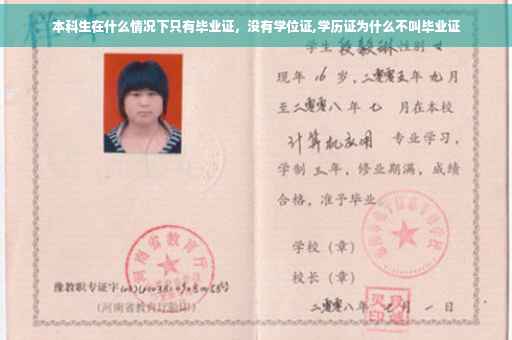 本科生在什么情况下只有毕业证，没有学位证,学历证为什么不叫毕业证
学生 性别 女
现年 16 岁，二零零五年 九月
至二零零八年 七 月在本校
计算机应用 专业学习，
学制 三 年，修业期满，成绩
合格，准予毕业
学校（章）
校长（章）
河南省教育厅
豫教职专证字
（河南省教育厅验印）
二零零八年 七 月 一 日